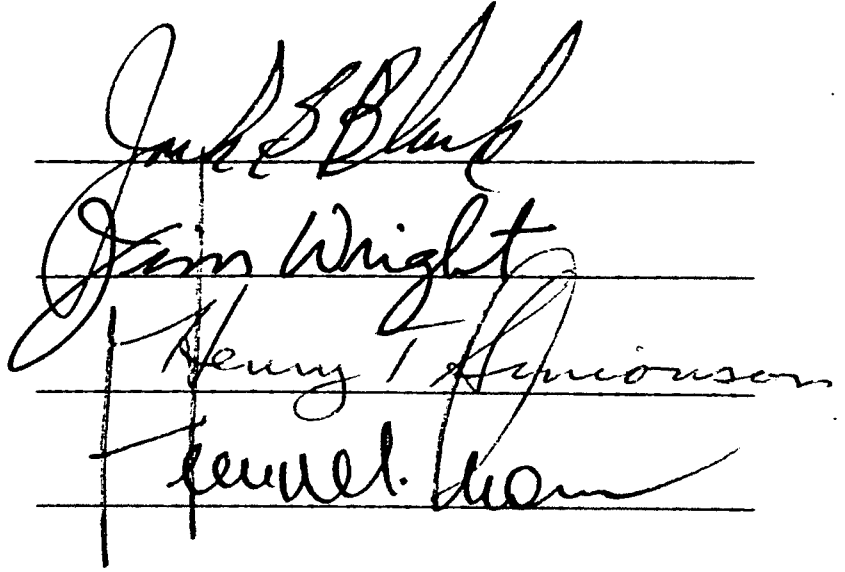 Jack B Black
Jim Wright
Henry T Simionson